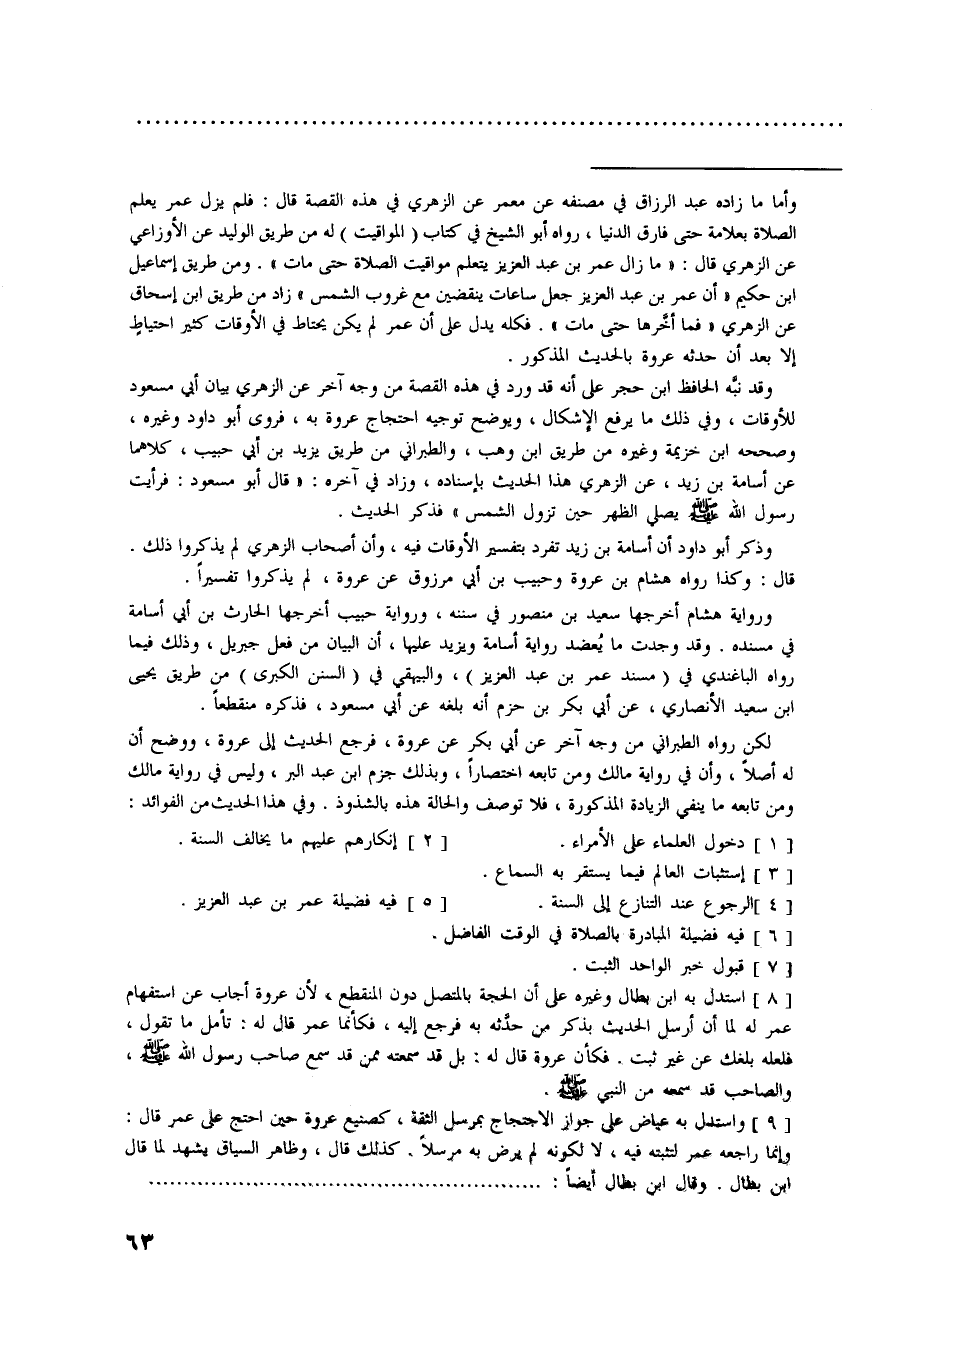 ................................................................................
وأما ما زاده عبد الرزاق في مصنفه عن معمر عن الزهري في هذه القصة قال : فلم يزل عمر يعلم
الصلاة بعلامة حتى فارق الدنيا ، رواه أبو الشيخ في كتاب ( المواقيت ) له من طريق الوليد عن الأوزاعي
عن الزهري قال : « ما زال عمر بن عبد العزيز يتعلم مواقيت الصلاة حتى مات » . ومن طريق إسماعيل
ابن حكيم « أن عمر بن عبد العزيز جعل ساعات ينقضين مع غروب الشمس » زاد من طريق ابن إسحاق
عن الزهري « فما أخَّرها حتى مات » . فكله يدل على أن عمر لم يكن يحتاط في الأوقات كثير احتياطٍ
إلا بعد أن حدثه عروة بالحديث المذكور .
وقد نبَّه الحافظ ابن حجر على أنه قد ورد في هذه القصة من وجه آخر عن الزهري بيان أبي مسعود
للأوقات ، وفي ذلك ما يرفع الإشكال ، ويوضح توجيه احتجاج عروة به ، فروى أبو داود وغيره ،
وصححه ابن خزيمة وغيره من طريق ابن وهب ، والطبراني من طريق يزيد بن أبي حبيب ، كلاهما
عن أسامة بن زيد ، عن الزهري هذا الحديث بإسناده ، وزاد في آخره : « قال أبو مسعود : فرأيت
رسول الله ﷺ يصلي الظهر حين تزول الشمس » فذكر الحديث .
وذكر أبو داود أن أسامة بن زيد تفرد بتفسير الأوقات فيه ، وأن أصحاب الزهري لم يذكروا ذلك .
قال : وكذا رواه هشام بن عروة وحبيب بن أبي مرزوق عن عروة ، لم يذكروا تفسيراً .
ورواية هشام أخرجها سعيد بن منصور في سننه ، ورواية حبيب أخرجها الحارث بن أبي أسامة
في مسنده . وقد وجدت ما يُعضد رواية أسامة ويزيد عليها ، أن البيان من فعل جبريل ، وذلك فيما
رواه الباغندي في ( مسند عمر بن عبد العزيز ) ، والبيهقي في ( السنن الكبرى ) من طريق يحيى
ابن سعيد الأنصاري ، عن أبي بكر بن حزم أنه بلغه عن أبي مسعود ، فذكره منقطعاً .
لكن رواه الطبراني من وجه آخر عن أبي بكر عن عروة ، فرجع الحديث إلى عروة ، ووضح أن
له أصلاً ، وأن في رواية مالك ومن تابعه اختصاراً ، وبذلك جزم ابن عبد البر ، وليس في رواية مالك
ومن تابعه ما ينفي الزيادة المذكورة ، فلا توصف والحالة هذه بالشذوذ . وفي هذا الحديث من الفوائد :
[ ١ ] دخول العلماء على الأمراء . [ ٢ ] إنكارهم عليهم ما يخالف السنة .
[ ٣ ] إستثبات العالم فيما يستقر به السماع .
[ ٤ ]الرجوع عند التنازع إلى السنة . [ ٥ ] فيه فضيلة عمر بن عبد العزيز .
[ ٦ ] فيه فضيلة المبادرة بالصلاة في الوقت الفاضل .
[ ٧ ] قبول خبر الواحد الثبت .
[ ٨ ] استدل به ابن بطال وغيره على أن الحجة بالمتصل دون المنقطع ، لأن عروة أجاب عن استفهام
عمر له لما أن أرسل الحديث بذكر من حدَّثه به فرجع إليه ، فكأنما عمر قال له : تأمل ما تقول ،
فلعله بلغك عن غير ثبت . فكأن عروة قال له : بل قد سمعته ممن قد سمع صاحب رسول الله ﷺ ،
والصاحب قد سمعه من النبي ﷺ .
[ ٩ ] واستدل به عياض على جواز الاحتجاج بمرسل الثقة ، كصنيع عروة حين احتج على عمر قال :
وإنما راجعه عمر لتثبته فيه ، لا لكونه لم يرض به مرسلاً . كذلك قال ، وظاهر السياق يشهد لما قال
ابن بطال . وقال ابن بطال أيضاً : ..................................................
٦٣